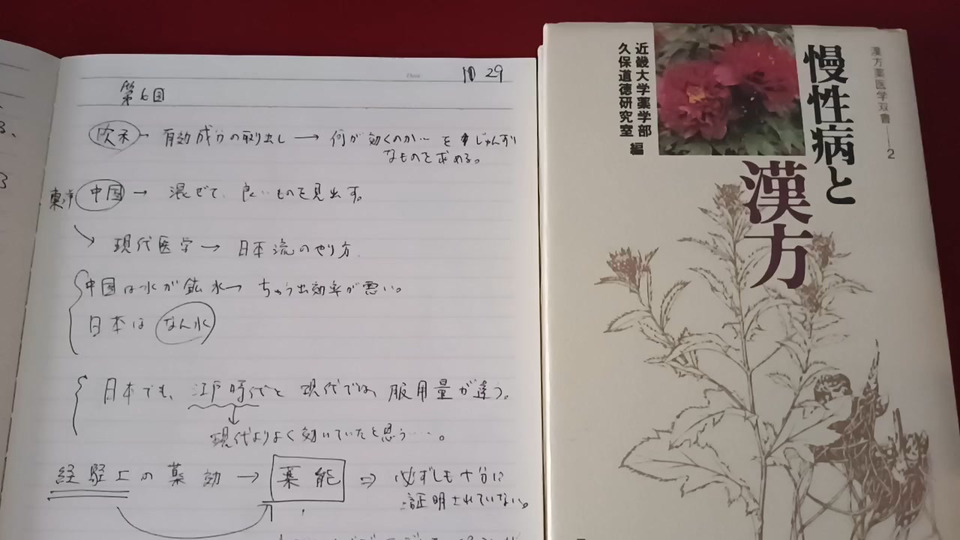 10 29
第6回
欧米 → 有効成分の取り出し → 何が効くのか…を じゅんすい
なものを求める。
東洋 中国 → 混ぜて、良いものを見出す。
現代医学 → 日本流のやり方
中国は水が鉱水 → ちゅう出効率が悪い。
日本は なん水
日本でも、江戸時代と現代では、服用量が違う。
現代よりよく効いていたと思う…。
経験上の薬効 → 薬能 ⇒ 必ずしも十分に
証明されていない。
漢方薬医学双書――2
慢性病と
漢方
近畿大学薬学部
久保道徳研究室 編